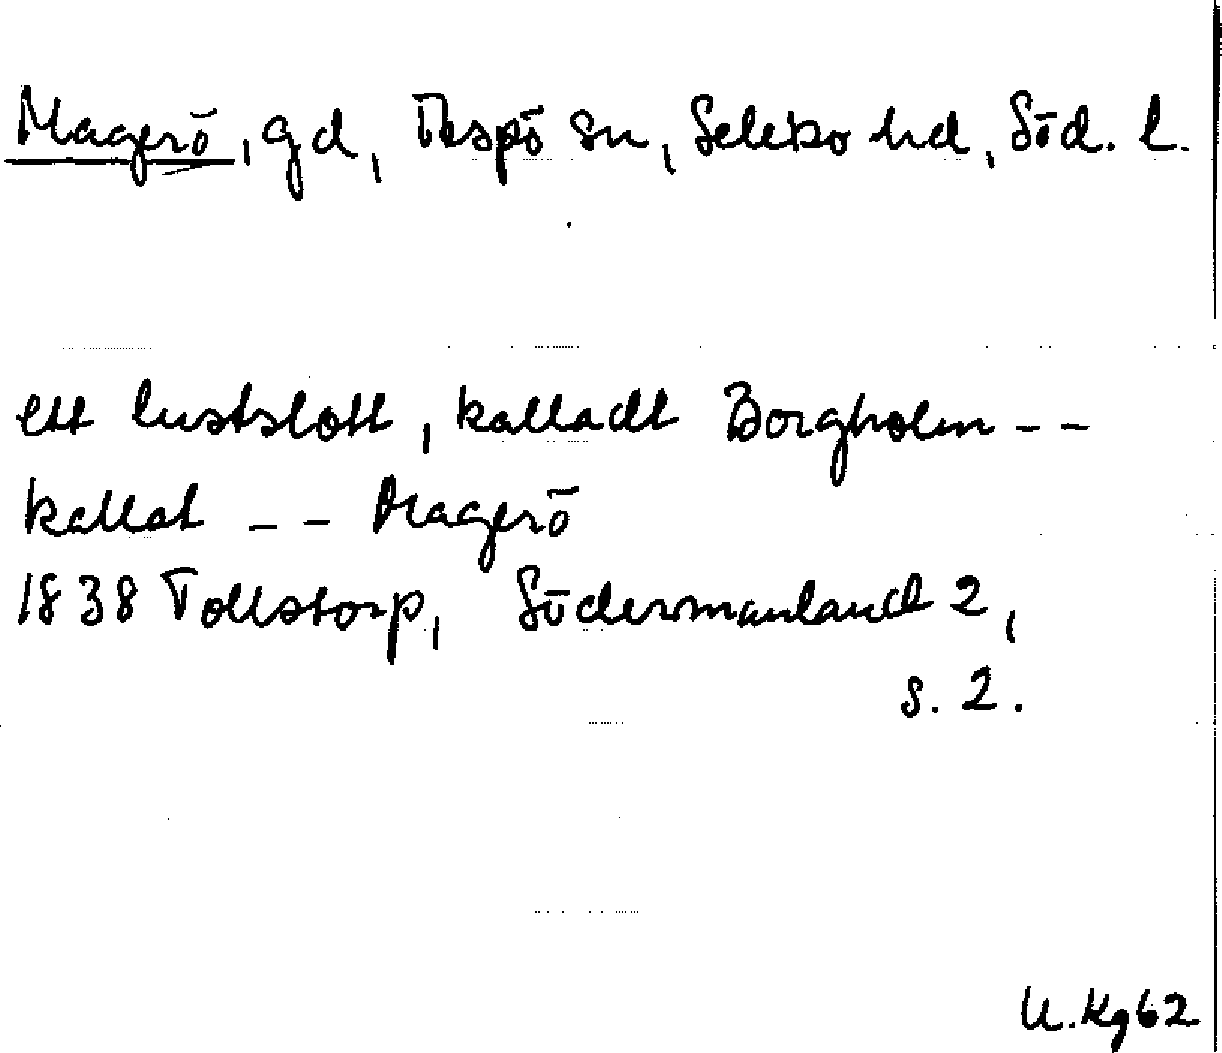 Magerö, gd, Toresund sn, Selebo hd, Söd. l.
ett lustslott, kalladt Borgholm --
kallat -- Magerö
1838 Tollstorp, Södermanland 2,
s. 2.
U.Kg62